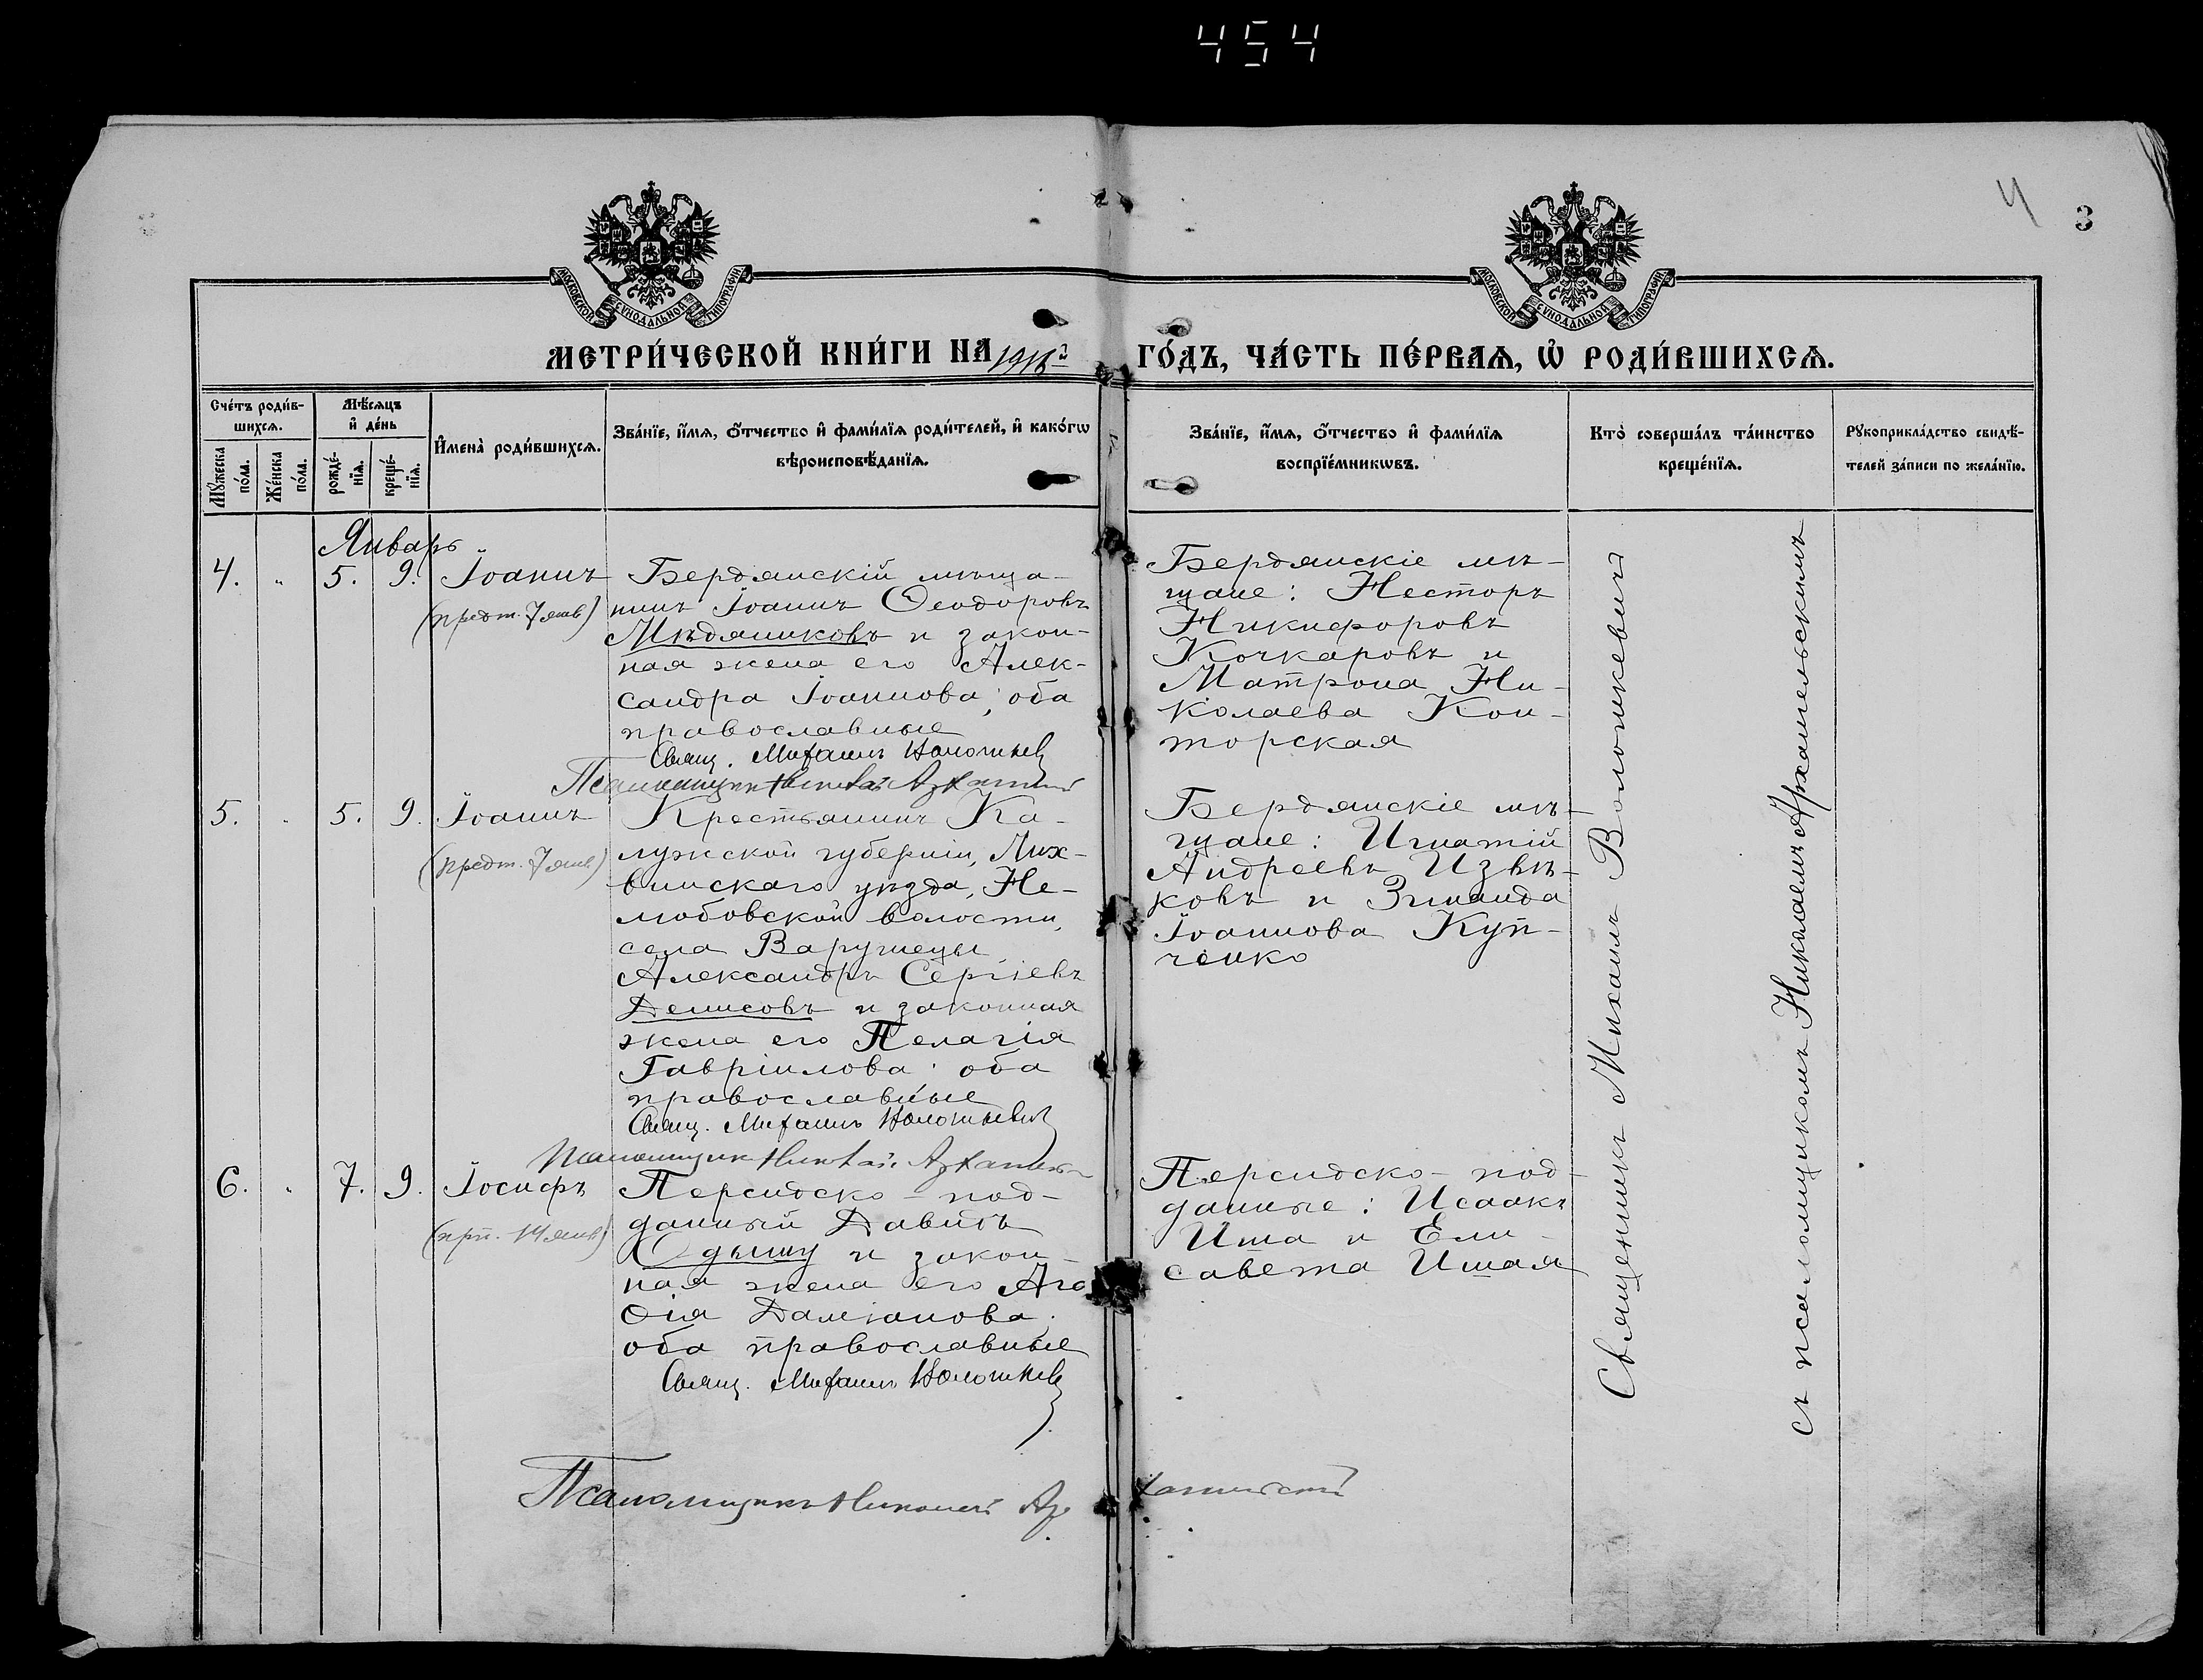 454
4
3
МОСКОВСКОЙ СѴНОДАЛЬНОЙ ТИПОГРАФІИ
МОСКОВСКОЙ СѴНОДАЛЬНОЙ ТИПОГРАФІИ
МЕТРИ́ЧЕСКОЙ КНИ́ГИ НА 1916 ГО́ДЪ, ЧА́СТЬ ПЕ́РВАѦ, Ѡ҆ РОДИ́ВШИХСѦ.
Сче́тъ роди́в-
шихсѧ.
Мꙋ́жеска по́ла.
Же́нска по́ла.
Мѣ́сѧцъ
и҆ де́нь
рожде́-
нїѧ.
креще́-
нїѧ.
И҆мена̀ роди́вшихсѧ.
Зва́нїе, и҆́мѧ, ѻ҆́тчество и҆ фами́лїѧ роди́телей, и҆ како́гѡ
вѣроисповѣ́данїѧ.
Зва́нїе, и҆́мѧ, ѻ҆́тчество и҆ фами́лїѧ
воспрїе́мникѡвъ.
Кто̀ соверша́лъ та́инство
креще́нїѧ.
Рꙋкоприкла́дство свидѣ́-
телей за́писи по жела́нїю.
Январь
4. " 5. 9. Іоаннъ
(предт. 7 янв)
Бердянскій мѣща-
нинъ Іоаннъ Ѳеодоровъ
Мѣдяниковъ и закон-
ная жена его Алек-
сандра Іоаннова; оба
православные
Свящ. Михаилъ Волоткев
Псаломщикъ Николай
Бердянскіе мѣ-
щане: Несторъ
Никифоровъ
Кочкаровъ и
Матрона Ни-
колаева Кон-
торская
5. " 5. 9. Іоаннъ
(предт. 7 янв)
Крестьянинъ Ка-
лужской губерніи, Лих-
винскаго уѣзда, Не-
любовской волости,
села Варушецы
Александръ Сергіевъ
Денисовъ и законная
жена его Пелагія
Гавріилова; оба
православные
Свящ. Михаилъ
Псаломщикъ Николай
Бердянскіе мѣ-
щане: Игнатій
Андреевъ Извѣ-
ковъ и Зинаида
Іоаннова Куп-
ченко
6. " 7. 9. Іосифъ
(пр. 14 янв)
Персидско-под-
данный Давидъ
Одышу и закон-
ная жена его Ага-
ѳія Даміанова;
оба православные
Свящ. Михаилъ
Псаломщикъ Николай
Персидско-под-
данные: Исаакъ
Иша и Ели-
савета Ишая
Священникъ Михаилъ Волоткевичъ
съ псаломщикомъ Николаемъ Архангельскимъ